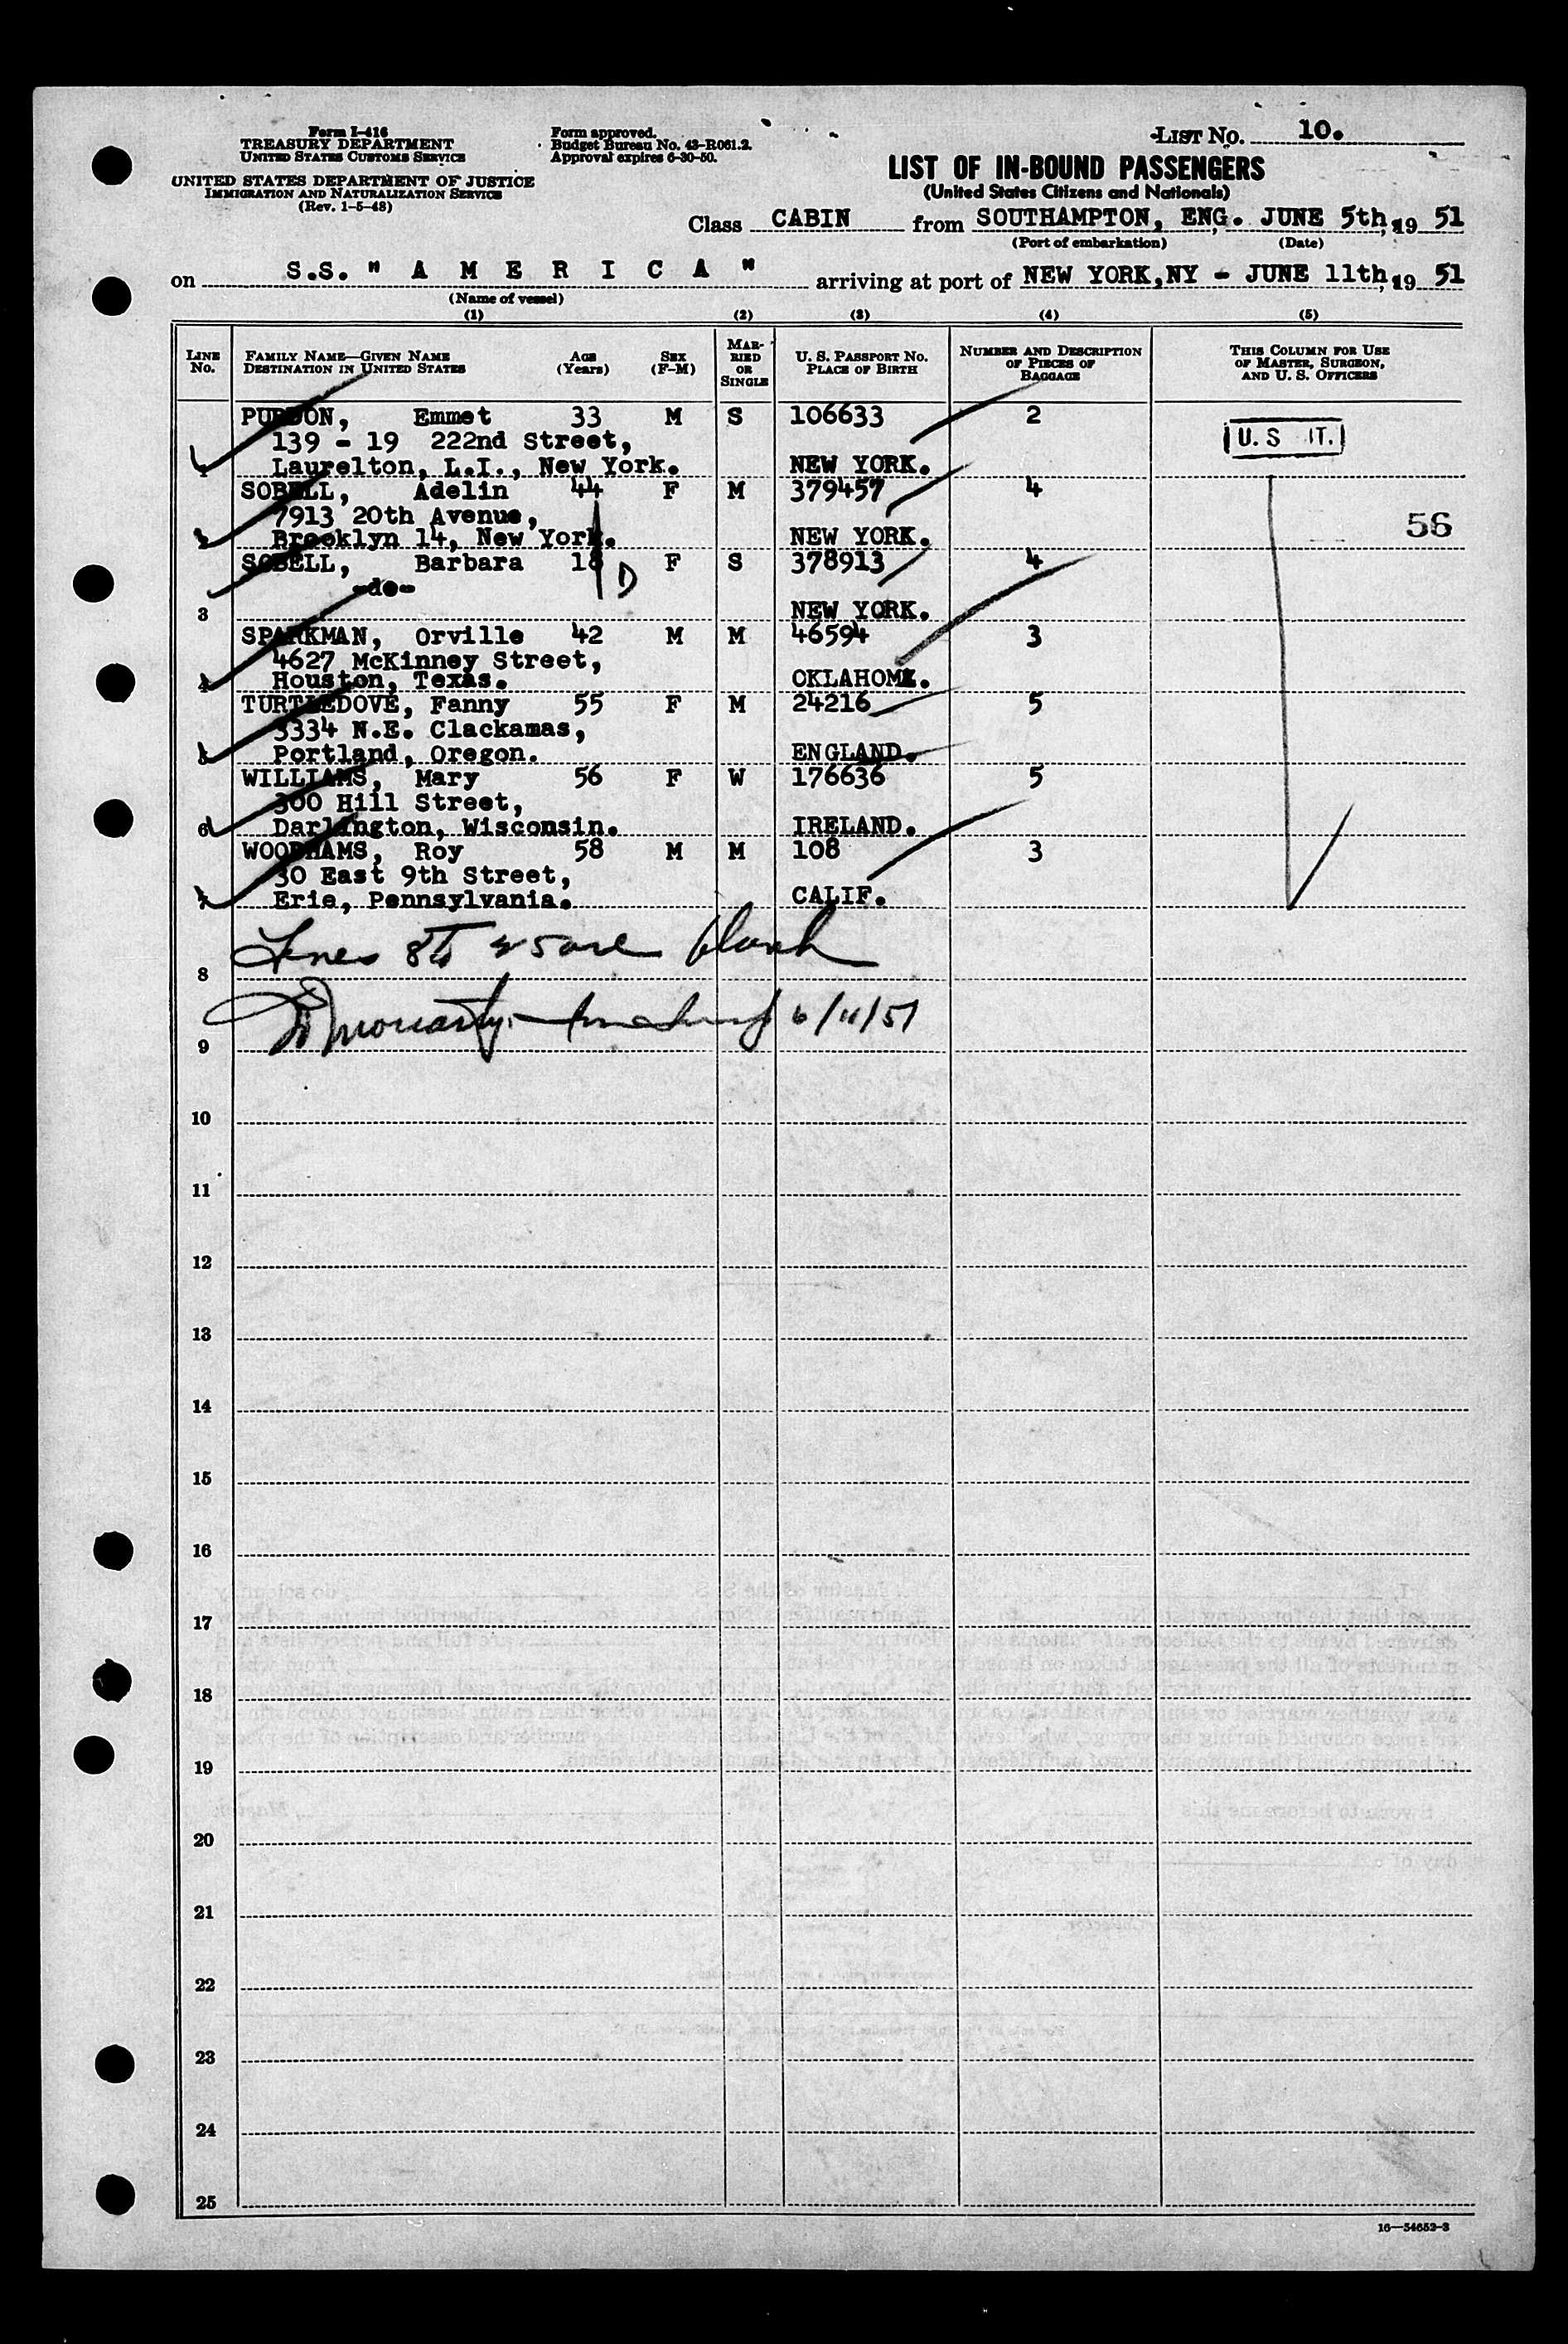 Form I-416
TREASURY DEPARTMENT
UNITED STATES CUSTOMS SERVICE
UNITED STATES DEPARTMENT OF JUSTICE
IMMIGRATION AND NATURALIZATION SERVICE
(Rev. 1-5-48)
Form approved.
Budget Bureau No. 43-R061.2.
Approval expires 6-30-50.
LIST NO. 10.
LIST OF IN-BOUND PASSENGERS
(United States Citizens and Nationals)
Class CABIN from SOUTHAMPTON, ENG. JUNE 5th, 19 51
(Port of embarkation) (Date)
on S.S. " A M E R I C A " arriving at port of NEW YORK,NY - JUNE 11th, 19 51
(Name of vessel)
(1) (2) (3) (4) (5)
LINE NO.
FAMILY NAME—GIVEN NAME
DESTINATION IN UNITED STATES
AGE (Years)
SEX (F-M)
MARRIED OR SINGLE
U. S. PASSPORT NO.
PLACE OF BIRTH
NUMBER AND DESCRIPTION OF PIECES OF BAGGAGE
THIS COLUMN FOR USE OF MASTER, SURGEON, AND U. S. OFFICERS
PURDON, Emmet 33 M S 106633 2
139 - 19 222nd Street,
Laurelton, L.I., New York. NEW YORK.
SOBELL, Adelin 44 F M 379457 4
7913 20th Avenue, 56
Brooklyn 14, New York. NEW YORK.
SOBELL, Barbara 18 F S 378913 4
-do- D
3 NEW YORK.
SPARKMAN, Orville 42 M M 46594 3
4627 McKinney Street,
4 Houston, Texas. OKLAHOMA.
TURTLEDOVE, Fanny 55 F M 24216 5
3334 N.E. Clackamas,
Portland, Oregon. ENGLAND.
WILLIAMS, Mary 56 F W 176636 5
300 Hill Street,
6 Darlington, Wisconsin. IRELAND.
WOODHAMS, Roy 58 M M 108 3
30 East 9th Street,
7 Erie, Pennsylvania. CALIF.
Lines 8 to 25 are blank
8
Moriarty 6/11/51
9
10
11
12
13
14
15
16
17
18
19
20
21
22
23
24
25
16—54652-3